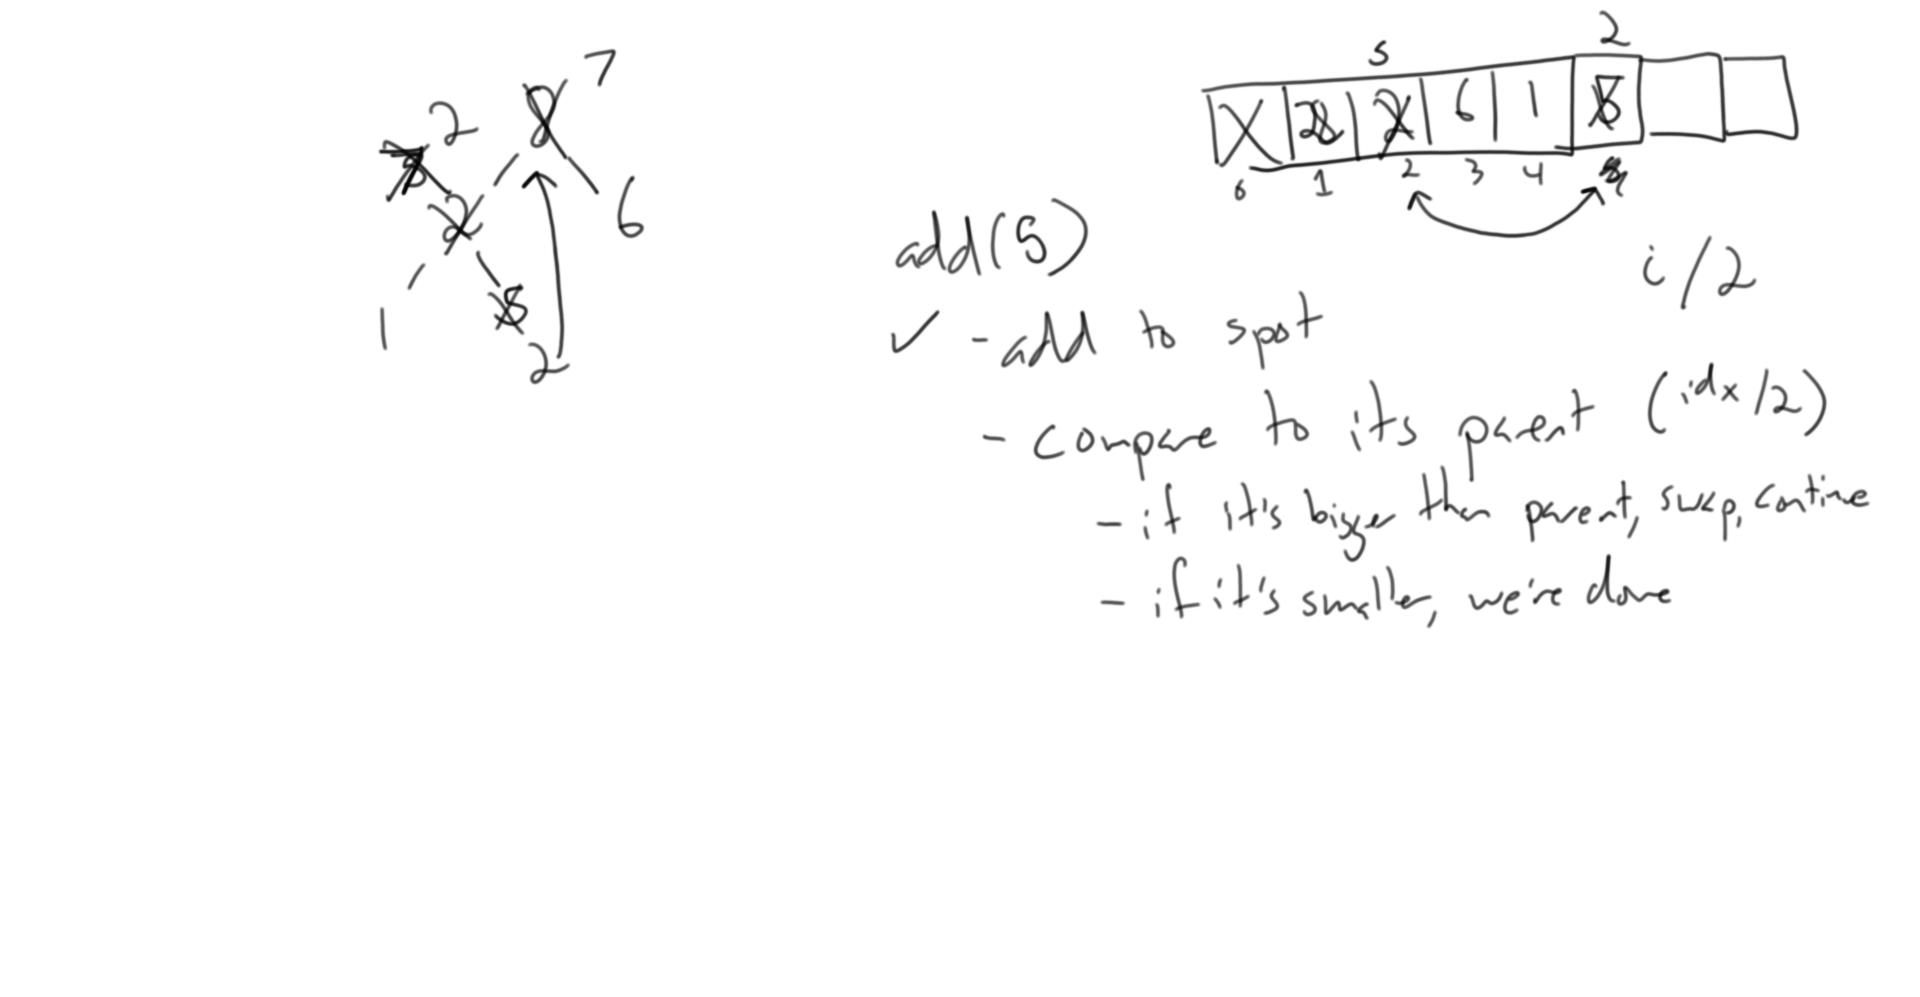 7
2
2
6
1
2
5 2
6 1
0 1 2 3 4
add(5)
i/2
✓ - add to spot
- compare to it's parent (idx/2)
- if it's bigger than parent, swap, continue
- if it's smaller, we're done